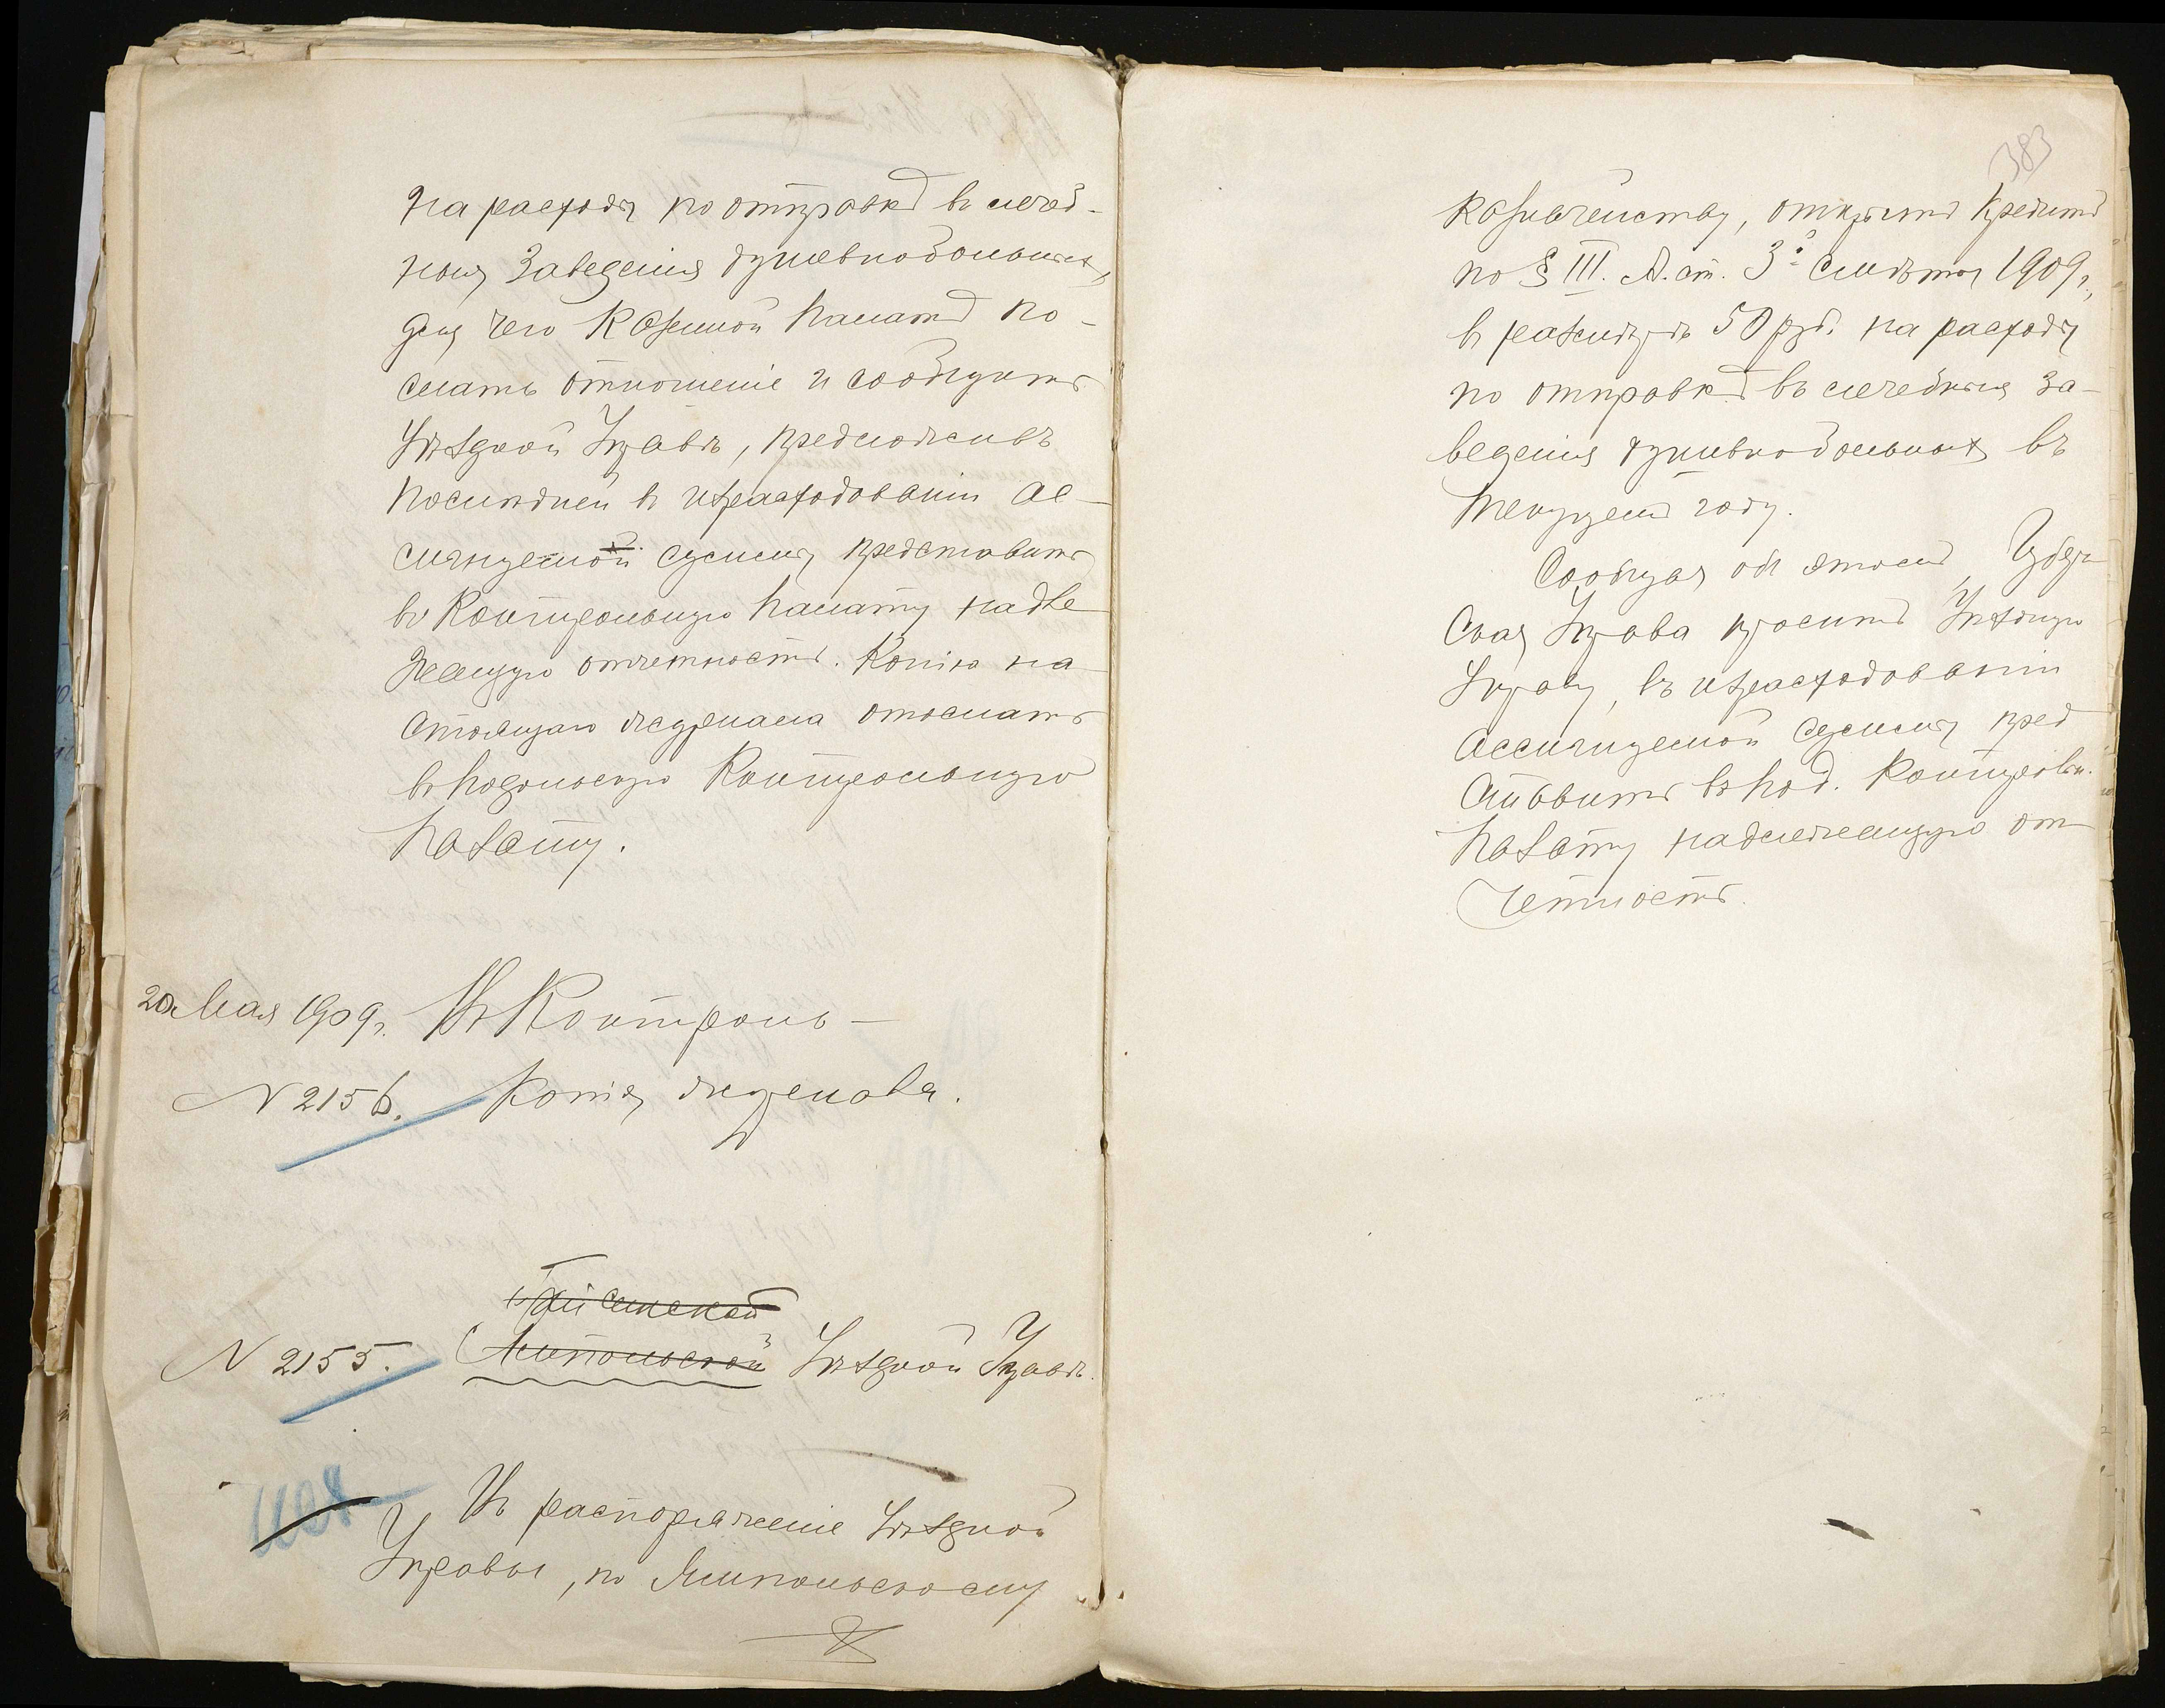 на расходы по отправкѣ въ лечеб-
ныя заведенія душевнобольныхъ,
для чего Казенной Палатѣ по-
слать отношеніе и сообщить
Уѣздной Управѣ, предложивъ
послѣдней въ израсходованіи ас-
сигнуемой суммы представить
въ Контрольную Палату надле-
жащую отчетность. Копію на-
стоящаго журнала отослать
въ Подольскую Контрольную
Палату.
20 Мая 1909 г. Въ Контроль –
N 2156. Копія журнала.
Гайсинской
N 2155. Ямпольской Уѣздной Управѣ.
1108 Въ распоряженіе Уѣздной
Управы, по Ямпольскому
383
Казначейству, открытъ кредитъ
по § III. А. ст. 3й смѣты 1909 г.,
въ размѣрѣ 50 руб. на расходы
по отправкѣ въ лечебныя за-
веденія душевнобольныхъ въ
текущемъ году.
Сообщая объ этомъ, Губерн
ская Управа проситъ Уѣздную
Управу, въ израсходованіи
ассигнуемой суммы пред
ставить въ Под. Контрольн.
Палату надлежащую от-
четность.